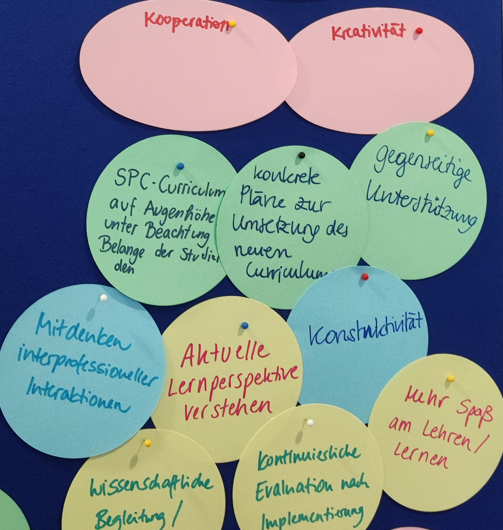 Kooperation
Kreativität
SPC-Curriculum
auf Augenhöhe
unter Beachtung
Belange der Studier
den
konkrete
Pläne zur
Umsetzung des
neuen
Curriculum
gegenseitige
Unterstützung
Mitdenken
interprofessioneller
Interaktionen
Aktuelle
Lernperspektive
verstehen
Konstruktivität
Mehr Spaß
am Lehren/
Lernen
Wissenschaftliche
Begleitung/
Kontinuierliche
Evaluation nach
Implementierung